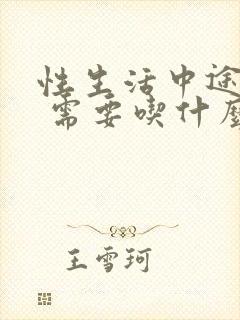 性生活中途
需要喫什麼
王雪珂